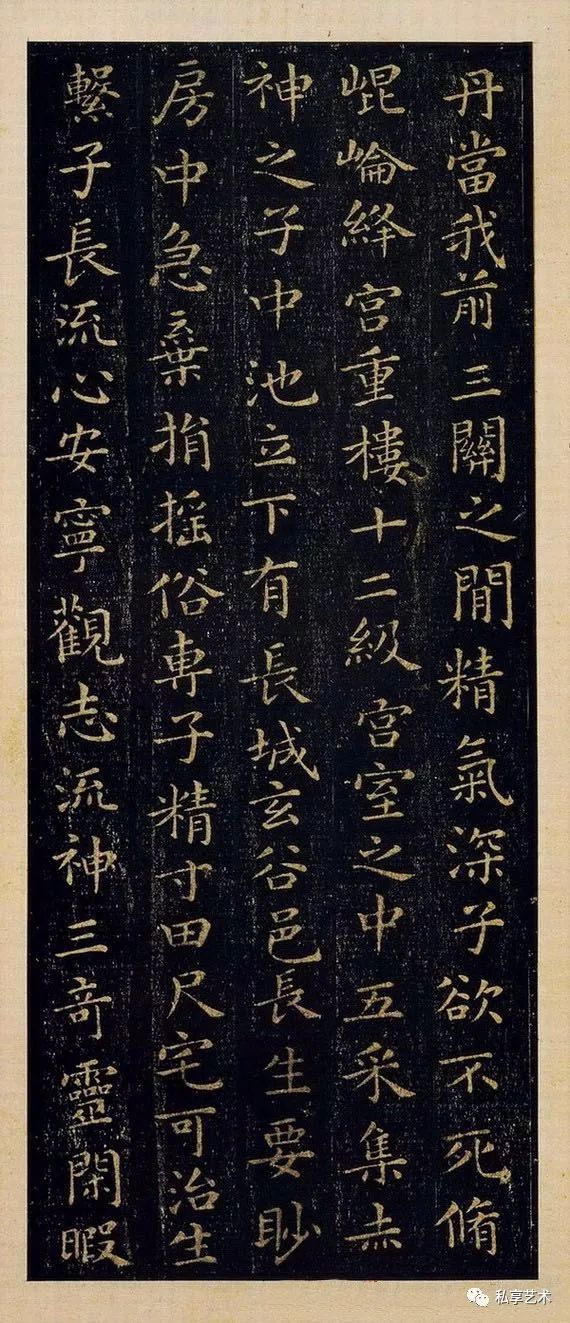 丹當我前三關之閒精氣深子欲不死脩
崐崘絳宫重樓十二級宫室之中五采集赤
神之子中池立下有長城玄谷邑長生要眇
房中急棄捐揺俗專子精寸田尺宅可治生
繫子長流心安寧觀志流神三奇靈閑暇
私享艺术